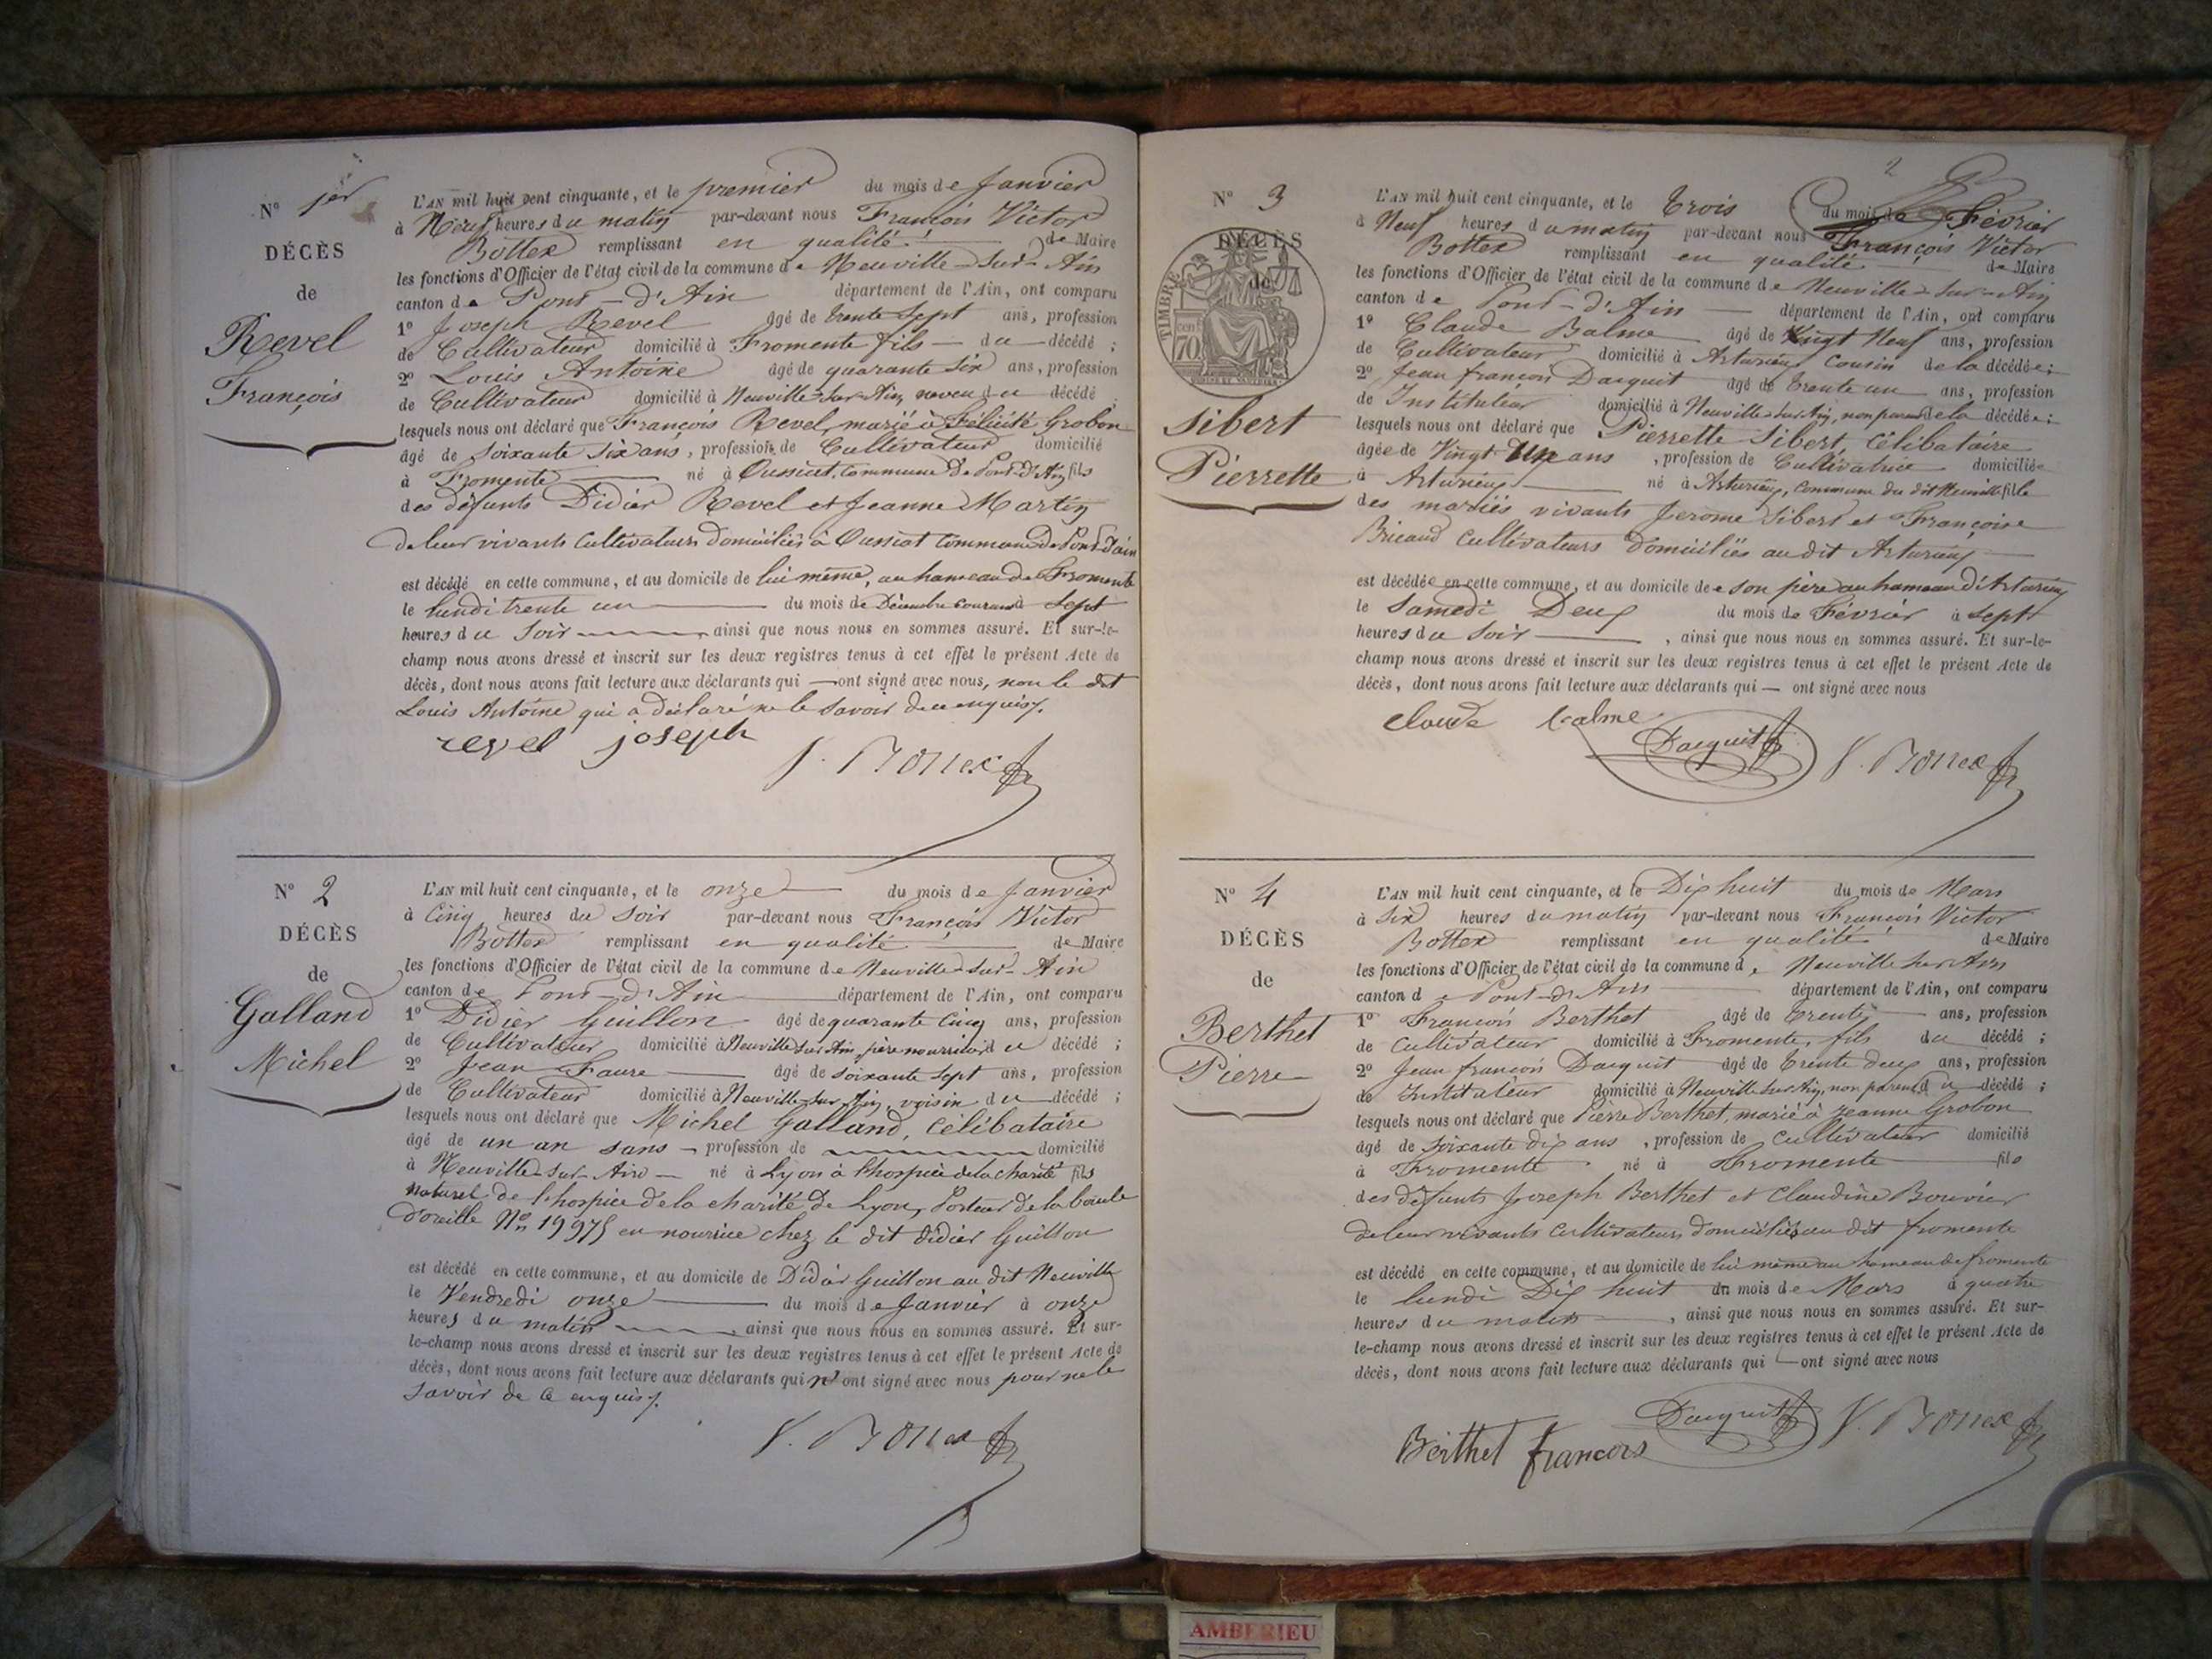 N° 1er
DÉCÈS
de
Revel
François
L'AN mil huit cent cinquante, et le premier du mois de Janvier
à Neuf heures du matin par-devant nous François Victor
Bottex remplissant en qualité de Maire
les fonctions d'Officier de l'état civil de la commune de Neuville-sur-Ain
canton de Pont-d'Ain département de l'Ain, ont comparu
1° Joseph Revel âgé de trente sept ans, profession
de Cultivateur domicilié à Fromente fils du décédé ;
2° Louis Antoine âgé de quarante six ans, profession
de Cultivateur domicilié à Neuville-sur-Ain neveu du décédé
lesquels nous ont déclaré que François Revel, marié à Félicité Grobon
âgé de soixante six ans, profession de Cultivateur domicilié
à Fromente né à Oussiat, Commune de Pont-d'Ain fils
des défunts Didier Revel et Jeanne Martin
de leur vivants Cultivateurs domiciliés à Oussiat Commune de Pont-d'ain
est décédé en cette commune, et au domicile de lui même, au hameau de Fromente
le lundi trente un du mois de Décembre courant à sept
heures du soir ainsi que nous nous en sommes assuré. Et sur-le-
champ nous avons dressé et inscrit sur les deux registres tenus à cet effet le présent Acte de
décès, dont nous avons fait lecture aux déclarants qui ont signé avec nous, non le dit
Louis Antoine qui a déclaré ne le savoir de ce enquis.
revel joseph
V. Bottex
N° 2
DÉCÈS
de
Galland
Michel
L'AN mil huit cent cinquante, et le onze du mois de Janvier
à Cinq heures du soir par-devant nous François Victor
Bottex remplissant en qualité de Maire
les fonctions d'Officier de l'état civil de la commune de Neuville-sur-Ain
canton de Pont-d'Ain département de l'Ain, ont comparu
1° Didier Guillon âgé de quarante Cinq ans, profession
de Cultivateur domicilié à Neuville sur Ain, père nourricier du décédé ;
2° Jean Faure âgé de soixante sept ans, profession
de Cultivateur domicilié à Neuville-sur-Ain, voisin du décédé ;
lesquels nous ont déclaré que Michel Galland, Célibataire
âgé de un an sans profession de domicilié
à Neuville-sur-Ain né à Lyon à l'hospice de la charité fils
naturel de l'hospice de la charité de Lyon, Porteur de la boucle
d'oreille N° 19975 en nourrice chez le dit Didier Guillon
est décédé en cette commune, et au domicile de Didier Guillon au dit Neuville
le Vendredi onze du mois de Janvier à onze
heures du matin ainsi que nous nous en sommes assuré. Et sur-
le-champ nous avons dressé et inscrit sur les deux registres tenus à cet effet le présent Acte de
décès, dont nous avons fait lecture aux déclarants qui n'ont signé avec nous pour ne le
savoir de ce enquis.
V. Bottex
2
N° 3
DÉCÈS
de
TIMBRE
70 cent
Sibert
Pierrette
L'AN mil huit cent cinquante, et le Trois du mois de Février
à Neuf heures du matin par-devant nous François Victor
Bottex remplissant en qualité de Maire
les fonctions d'Officier de l'état civil de la commune de Neuville-sur-Ain
canton de Pont-d'Ain département de l'Ain, ont comparu
1° Claude Balme âgé de Vingt Neuf ans, profession
de Cultivateur domicilié à Arturieux Cousin de la décédée ;
2° Jean françois Dacquit âgé de trente un ans, profession
de Instituteur domicilié à Neuville-sur-Ain, non parent de la décédée ;
lesquels nous ont déclaré que Pierrette Sibert, célibataire
âgée de Vingt Un ans, profession de Cultivatrice domiciliée
à Arturieux né à Arturieux, Commune du dit Neuville fille
des mariés vivants Jerome Sibert et Françoise
Bricaud Cultivateurs domiciliés au dit Arturieux
est décédée en cette commune, et au domicile de son père au hameau d'Arturieux
le Samedi Deux du mois de Février à sept
heures du soir, ainsi que nous nous en sommes assuré. Et sur-le-
champ nous avons dressé et inscrit sur les deux registres tenus à cet effet le présent Acte de
décès, dont nous avons fait lecture aux déclarants qui ont signé avec nous
claude balme Dacquit V. Bottex
N° 4
DÉCÈS
de
Berthet
Pierre
L'AN mil huit cent cinquante, et le Dix huit du mois de Mars
à Six heures du matin par-devant nous François Victor
Bottex remplissant en qualité de Maire
les fonctions d'Officier de l'état civil de la commune de Neuville sur Ain
canton de Pont-d'Ain département de l'Ain, ont comparu
1° François Berthet âgé de trente ans, profession
de Cultivateur domicilié à Fromente, fils du décédé ;
2° Jean françois Dacquit âgé de trente deux ans, profession
de Instituteur domicilié à Neuville sur Ain, non parent du décédé ;
lesquels nous ont déclaré que Pierre Berthet, marié à Jeanne Grobon
âgé de soixante dix ans, profession de Cultivateur domicilié
à Fromente né à Fromente fils
des défunts Joseph Berthet et Claudine Bouvier
de leur vivants Cultivateurs domiciliés au dit fromente
est décédé en cette commune, et au domicile de lui même au hameau de fromente
le lundi Dix huit du mois de Mars à quatre
heures du matin, ainsi que nous nous en sommes assuré. Et sur-
le-champ nous avons dressé et inscrit sur les deux registres tenus à cet effet le présent Acte de
décès, dont nous avons fait lecture aux déclarants qui ont signé avec nous
Berthet francois Dacquit V. Bottex
AMBERIEU